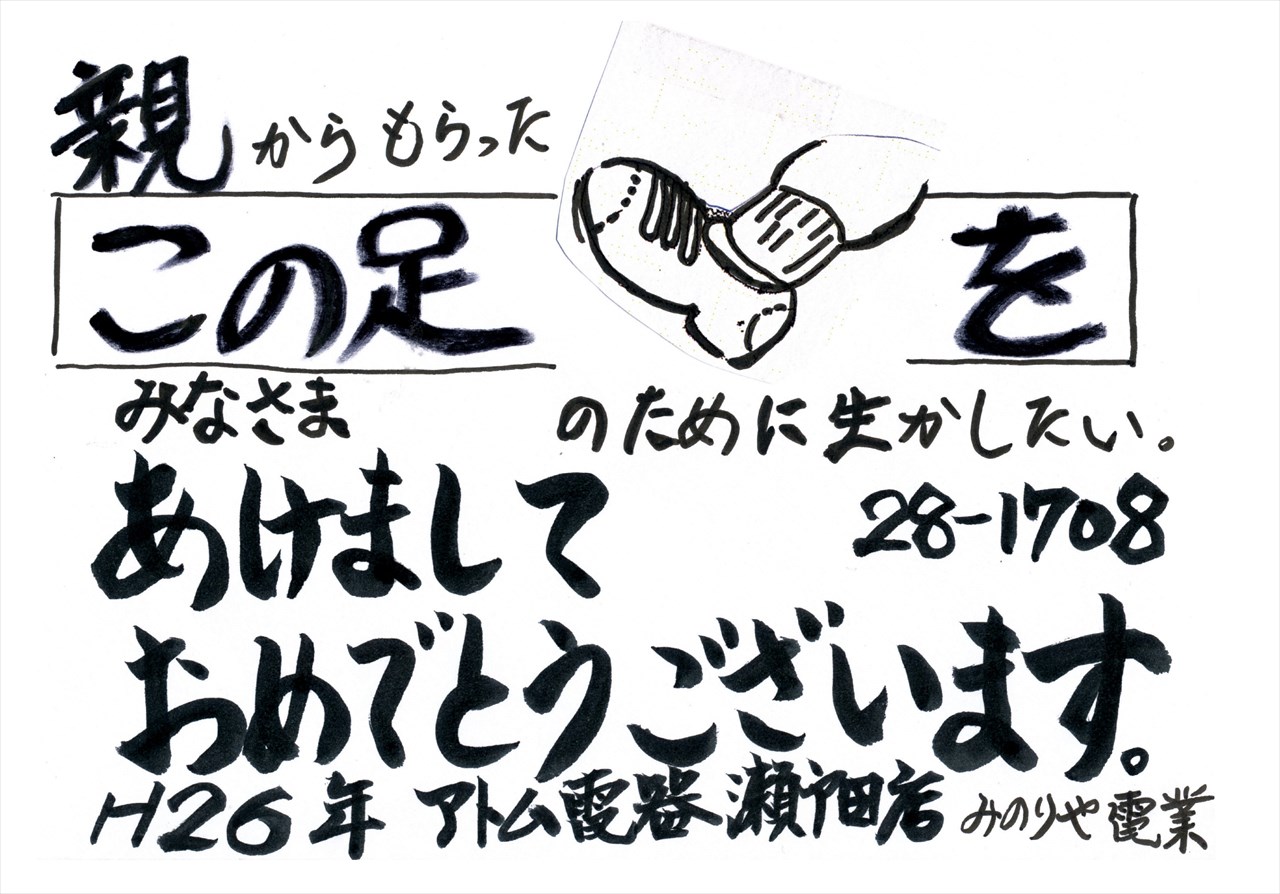 親からもらった
この足を
みなさまのために生かしたい。
あけまして
28-1708
おめでとうございます。
H26年 アトム電器 瀬戸田店 みのりや電業